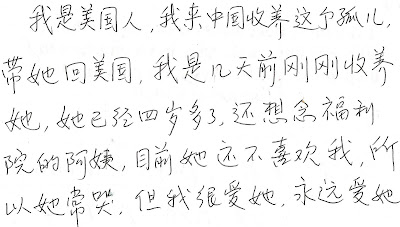 我是美国人,我来中国收养这个孤儿,
带她回美国,我是几天前刚刚收养
她,她已经四岁多了,还想念福利
院的阿姨,目前她还不喜欢我,所
以她常哭,但我很爱她,永远爱她